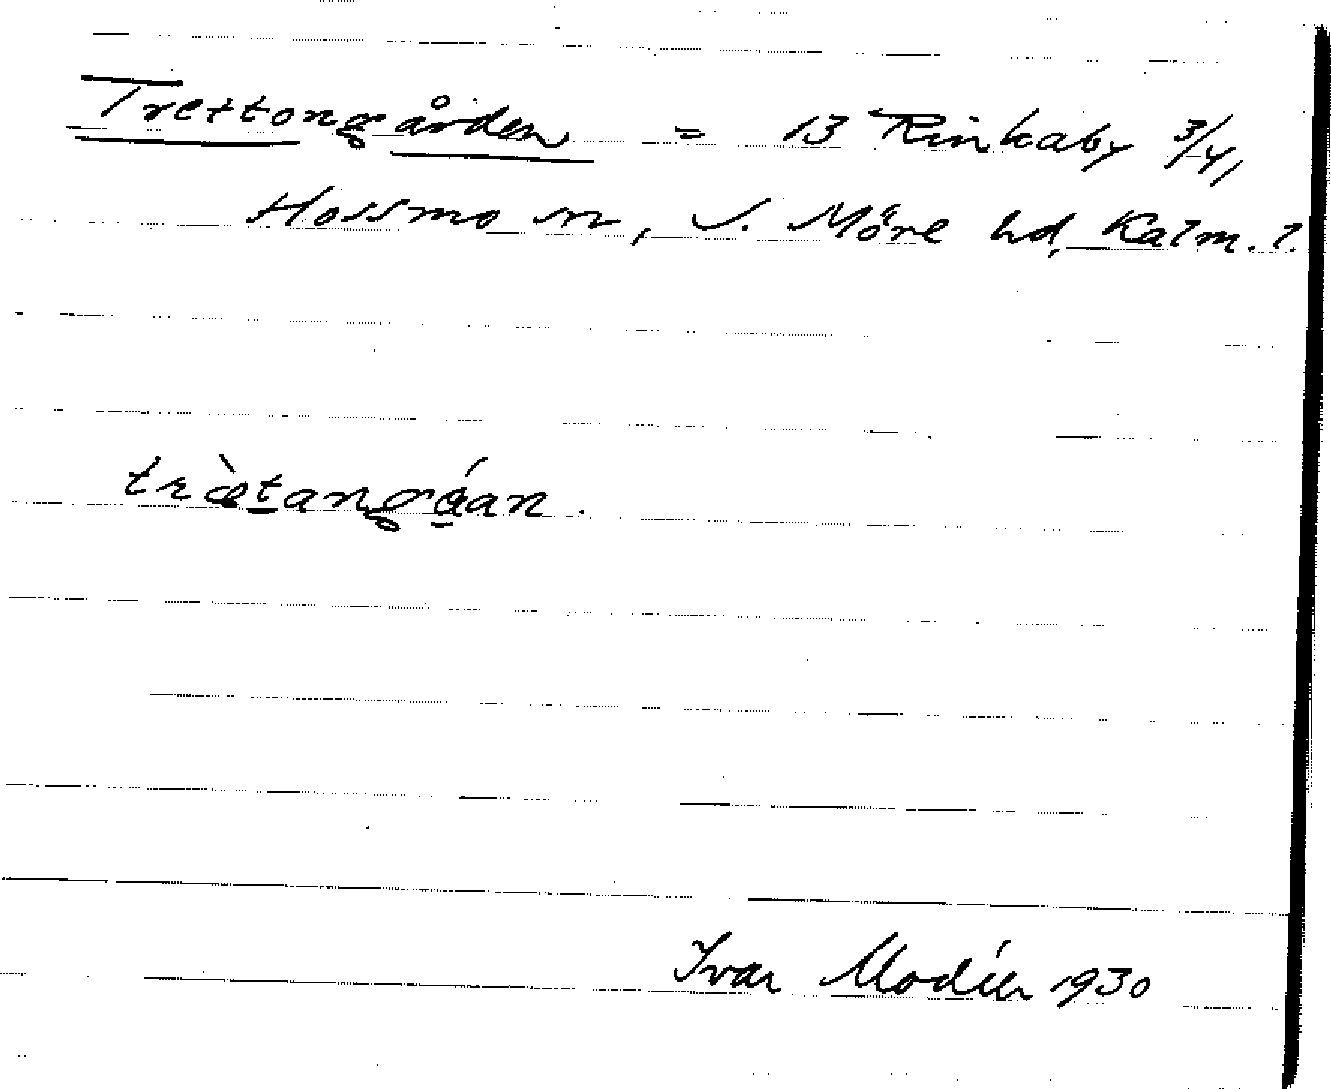 Trettongården = 13 Rinkaby 3/4,
Hossmo sn, S. Möre hd, Kalm. l.
træ̀tangá̱an.
Ivar Modéer 1930